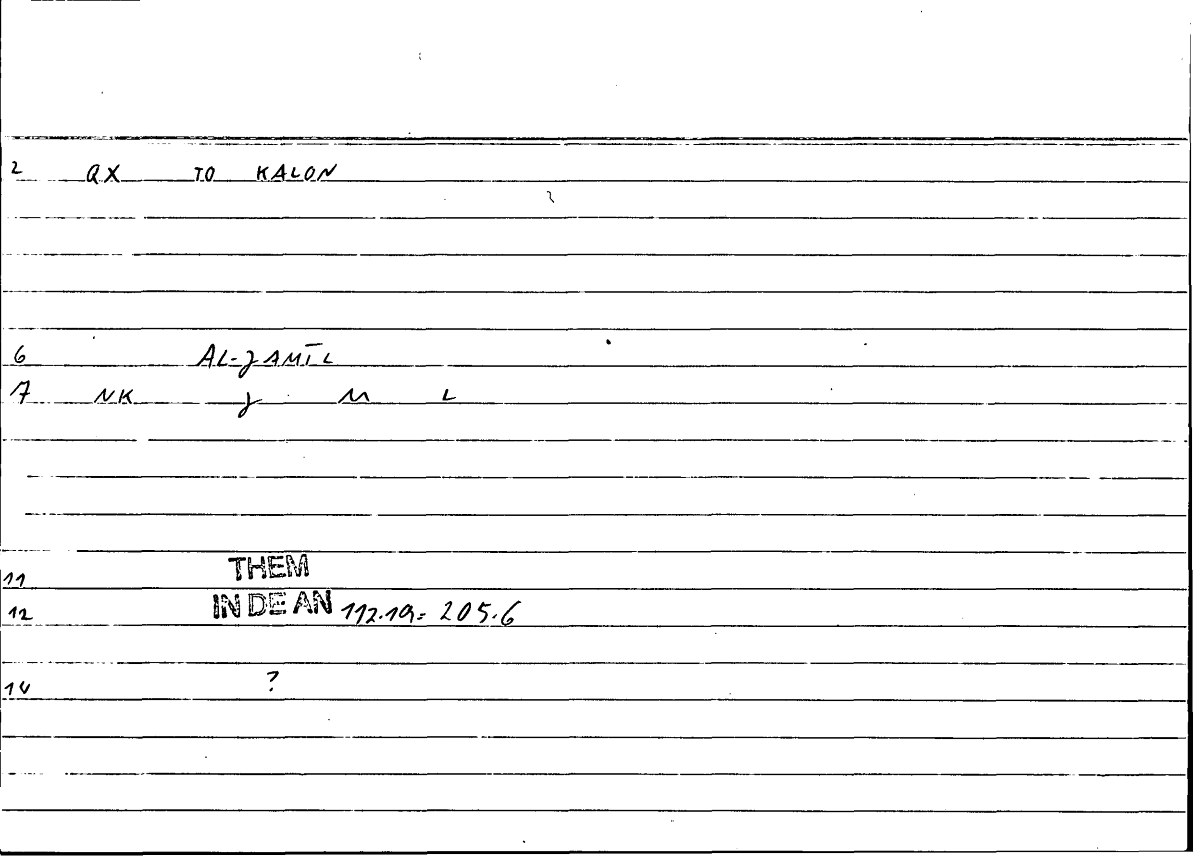 2 QX TO KALON
6 AL-JAMĪL
7 NK J M L
11 THEM
12 IN DE AN 112.19= 205.6
14 ?